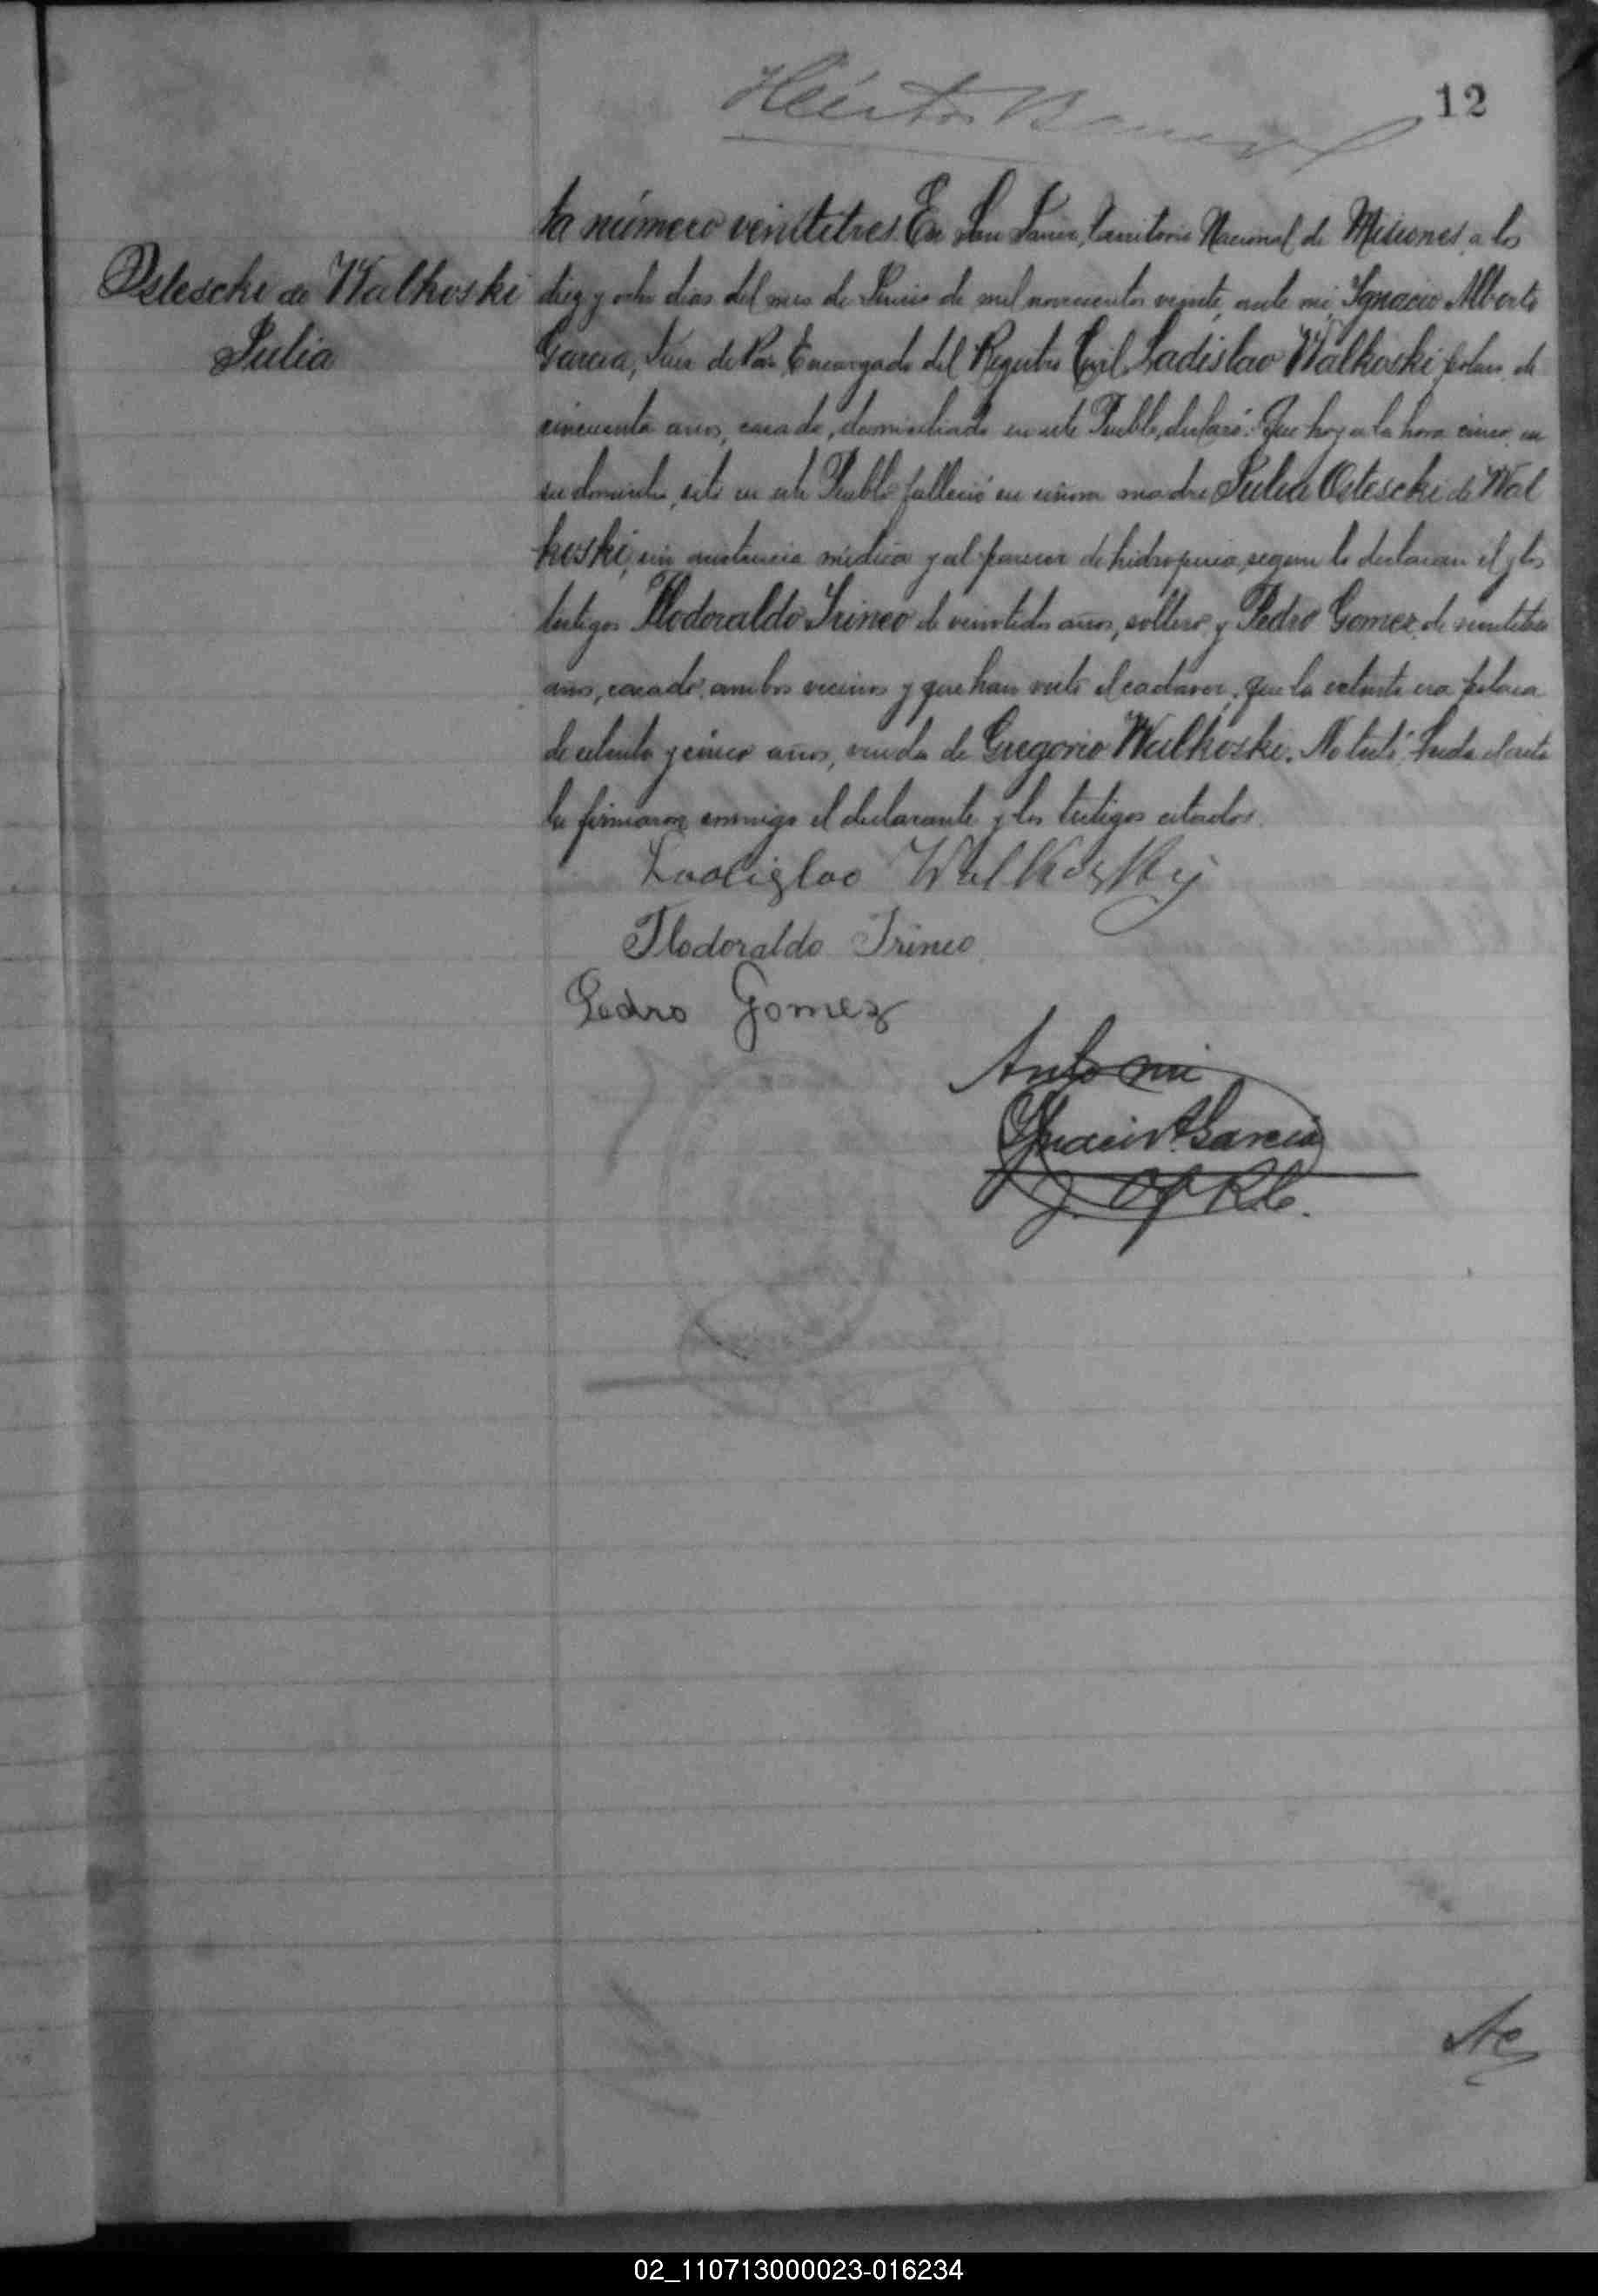 Héctor
12
Osteschi de Walkoski
Julia
ta número veintitres. En San Javier, Territorio Nacional de Misiones, a los
diez y ocho dias del mes de Junio de mil novecientos veinte, ante mi, Ignacio Alberto
Garcia, Juez de Paz Encargado del Registro Civil, Ladislao Walkoski polaco, de
cincuenta años, casado, domiciliado en este Pueblo, declaró: Que hoy a la hora cinco, en
su domicilio, sito en este Pueblo falleció su señora madre Julia Osteschi de Wal
koski, sin asistencia médica y al parecer de hidropesia, segun lo declaran el y los
testigos Flodoraldo Irineo de veintidos años, soltero, y Pedro Gomez, de veintitres
años, casado, ambos vecinos y que han visto el cadaver, que la extinta era polaca
de ochenta y cinco años, viuda de Gregorio Walkoski. No testó. Leida el acta
la firmaron conmigo el declarante y los testigos citados.
Ladislao Walkosky
Flodoraldo Irineo
Pedro Gomez
Ante mi
Ignacio A. Garcia
02_110713000023-016234